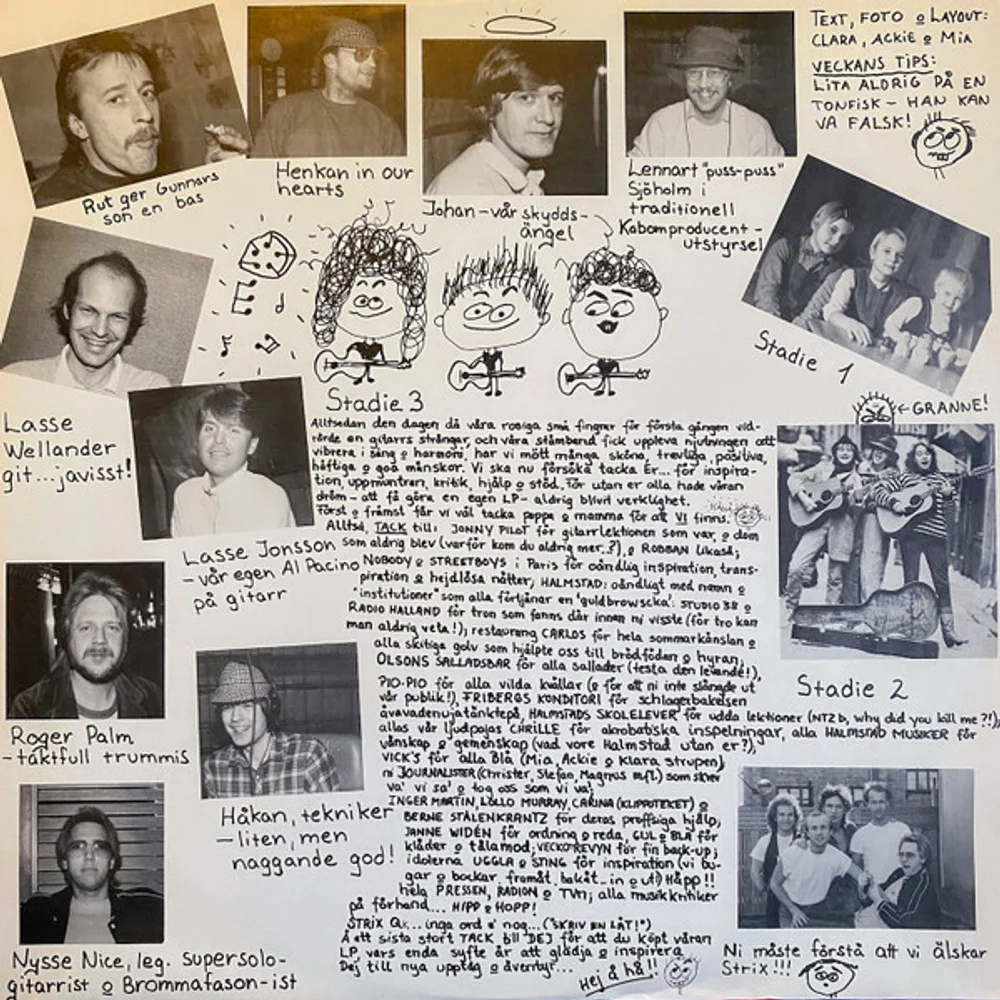 TEXT, FOTO o LAYOUT:
CLARA, ACKIE o MIA
VECKANS TIPS:
LITA ALDRIG PÅ EN
TONFISK - HAN KAN
VA FALSK!
Rutger Gunnars
son en bas
Henkan in our
hearts
Johan - vår skydds-
ängel
Lennart "puss-puss"
Sjöholm i
traditionell
Kabomproducent -
utstyrsel
Stadie 1
Lasse
Wellander
git...javisst!
Stadie 3
← GRANNE!
Alltsedan den dagen då våra rosiga små fingrar för första gången vid-
rörde en gitarrs strängar, och våra stämband fick uppleva njutningen att
vibrera i sång o harmoni, har vi mött många sköna, trevliga, positiva,
häftiga o goa mänskor. Vi ska nu försöka tacka Er... för inspira-
tion, uppmuntran, kritik, hjälp o stöd. För utan er alla hade våran
dröm - att få göra en egen LP - aldrig blivit verklighet.
Först o främst får vi väl tacka pappa o mamma för att VI finns.
Alltså, TACK till: JONNY PILOT för gitarrlektionen som var, o dom
som aldrig blev (varför kom du aldrig mer..?), o ROBBAN likaså;
NOBODY o STREETBOYS i Paris för oändlig inspiration, trans-
piration o hejdlösa nätter; HALMSTAD: oändligt med namn o
"institutioner" som alla förtjänar en "guldbrowscka": STUDIO 38 o
RADIO HALLAND för tron som fanns där innan ni visste (för tro kan
man aldrig veta!); restaurang CARLOS för hela sommarkänslan o
alla skitiga golv som hjälpte oss till brödfödan o hyran;
OLSONS SALLADSBAR för alla sallader (testa den levande!),
PIO-PIO för alla vilda kvällar (o för att ni inte slängde ut
vår publik!), FRIBERGS KONDITORI för schlagerbakelsen
åvavadenujatänktepå, HALMSTADS SKOLELEVER för udda lektioner (NTZ b, why did you kill me?!);
allas vår ljudpojas CHRILLE för akrobatiska inspelningar, alla HALMSTAD MUSIKER för
vänskap o gemenskap (vad vore Halmstad utan er?),
VICK'S för alla Blå (Mia, Ackie o Klara strupen),
ni JOURNALISTER (Christer, Stefan, Magnus mfl.) som skrev
va' vi sa' o tog oss som vi va;
INGER MARTIN, LOLLO MURRAY, CARINA (KLIPPOTEKET) o
BERNE STÅLENKRANTZ för deras proffsiga hjälp;
JANNE WIDÉN för ordning o reda, GUL o BLÅ för
kläder o tålamod; VECKOREVYN för fin back-up;
idolerna UGGLA o STING för inspiration (vi bu-
gar o bockar, framåt, bakåt.. in o ut) Håpp!!
hela PRESSEN, RADION o TVn; alla musikkritiker
på förhand... HIPP o HOPP!
STRIX Q.. ...inga ord e' nog... ("SKRIV EN LÅT!")
Å ett sista stort TACK till "DEJ" för att du köpt våran
LP, vars enda syfte är att glädja o inspirera
Dej till nya upptåg o äventyr...
Hej å hå!!
Lasse Jonsson
- vår egen Al Pacino
på gitarr
Stadie 2
Roger Palm
- taktfull trummis
Håkan, tekniker
- liten, men
naggande god!
Nysse Nice, leg. supersolo-
gitarrist o Brommafason-ist
Ni måste förstå att vi älskar
Strix!!!